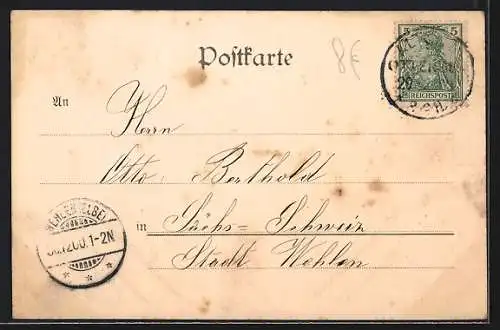 Postkarte
8€
5 5
REICHSPOST
An
Herrn
Otto Berthold
in Sächs. Schweiz
Stadt Wehlen
1-2N